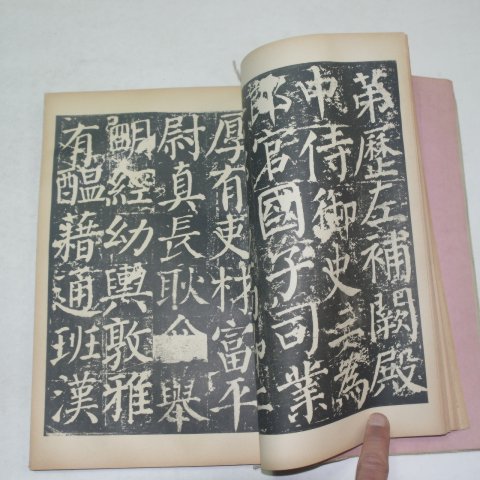 第歷左補闕殿
中侍御史三為
郎官國子司業
厚有吏材富平
尉真長耿介舉
明經幼輿敦雅
有醞藉通班漢